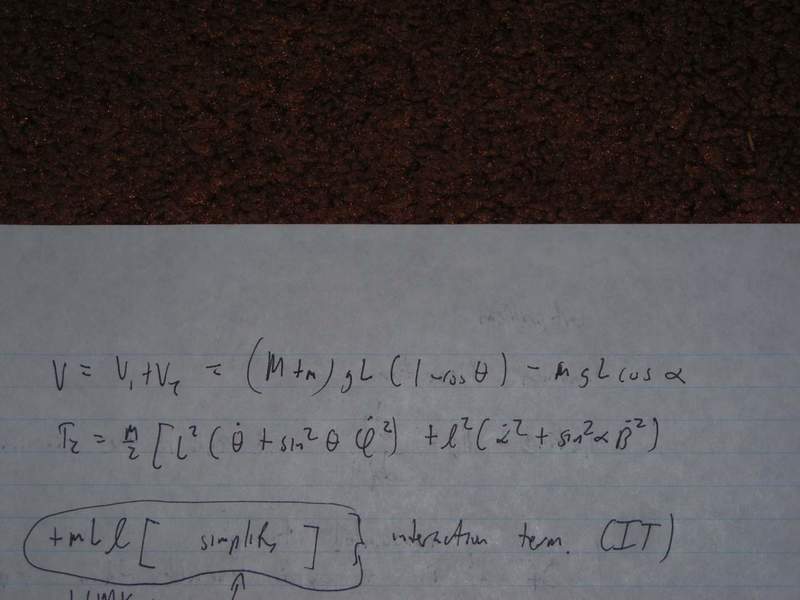 V = V₁ + V₂ = (M+m) gL (1-cos θ) - mgL cos α
T₂ = m/2 [L² (θ̇ + sin² θ φ̇²) + l² (α̇² + sin² α β̇²)
+mLl [ simplify ] } interaction term. (IT)